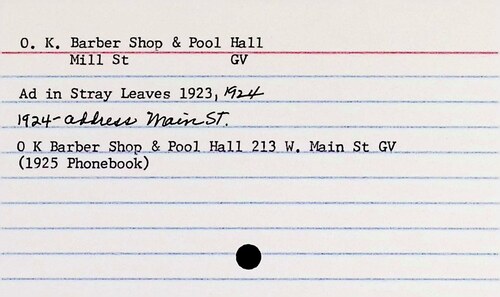 O. K. Barber Shop & Pool Hall
Mill St GV
Ad in Stray Leaves 1923, 1924
1924- address Main St.
O K Barber Shop & Pool Hall 213 W. Main St GV
(1925 Phonebook)